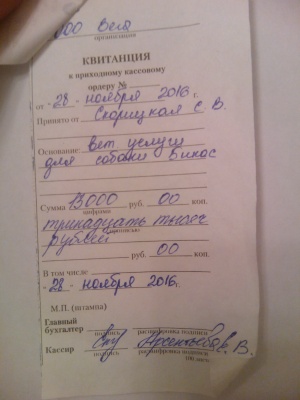 ООО Вега
организация
КВИТАНЦИЯ
к приходному кассовому
ордеру №
от "28" ноября 2016 г.
Принято от Скорицкая С. В.
Основание: вет услуги
для собаки Бикас
Сумма 13000 руб. 00 коп.
цифрами
тринадцать тысяч
рублей
прописью
руб. 00 коп.
В том числе
"28" ноября 2016 г.
М.П. (штампа)
Главный
бухгалтер
подпись расшифровка подписи
Кассир В.
подпись расшифровка подписи